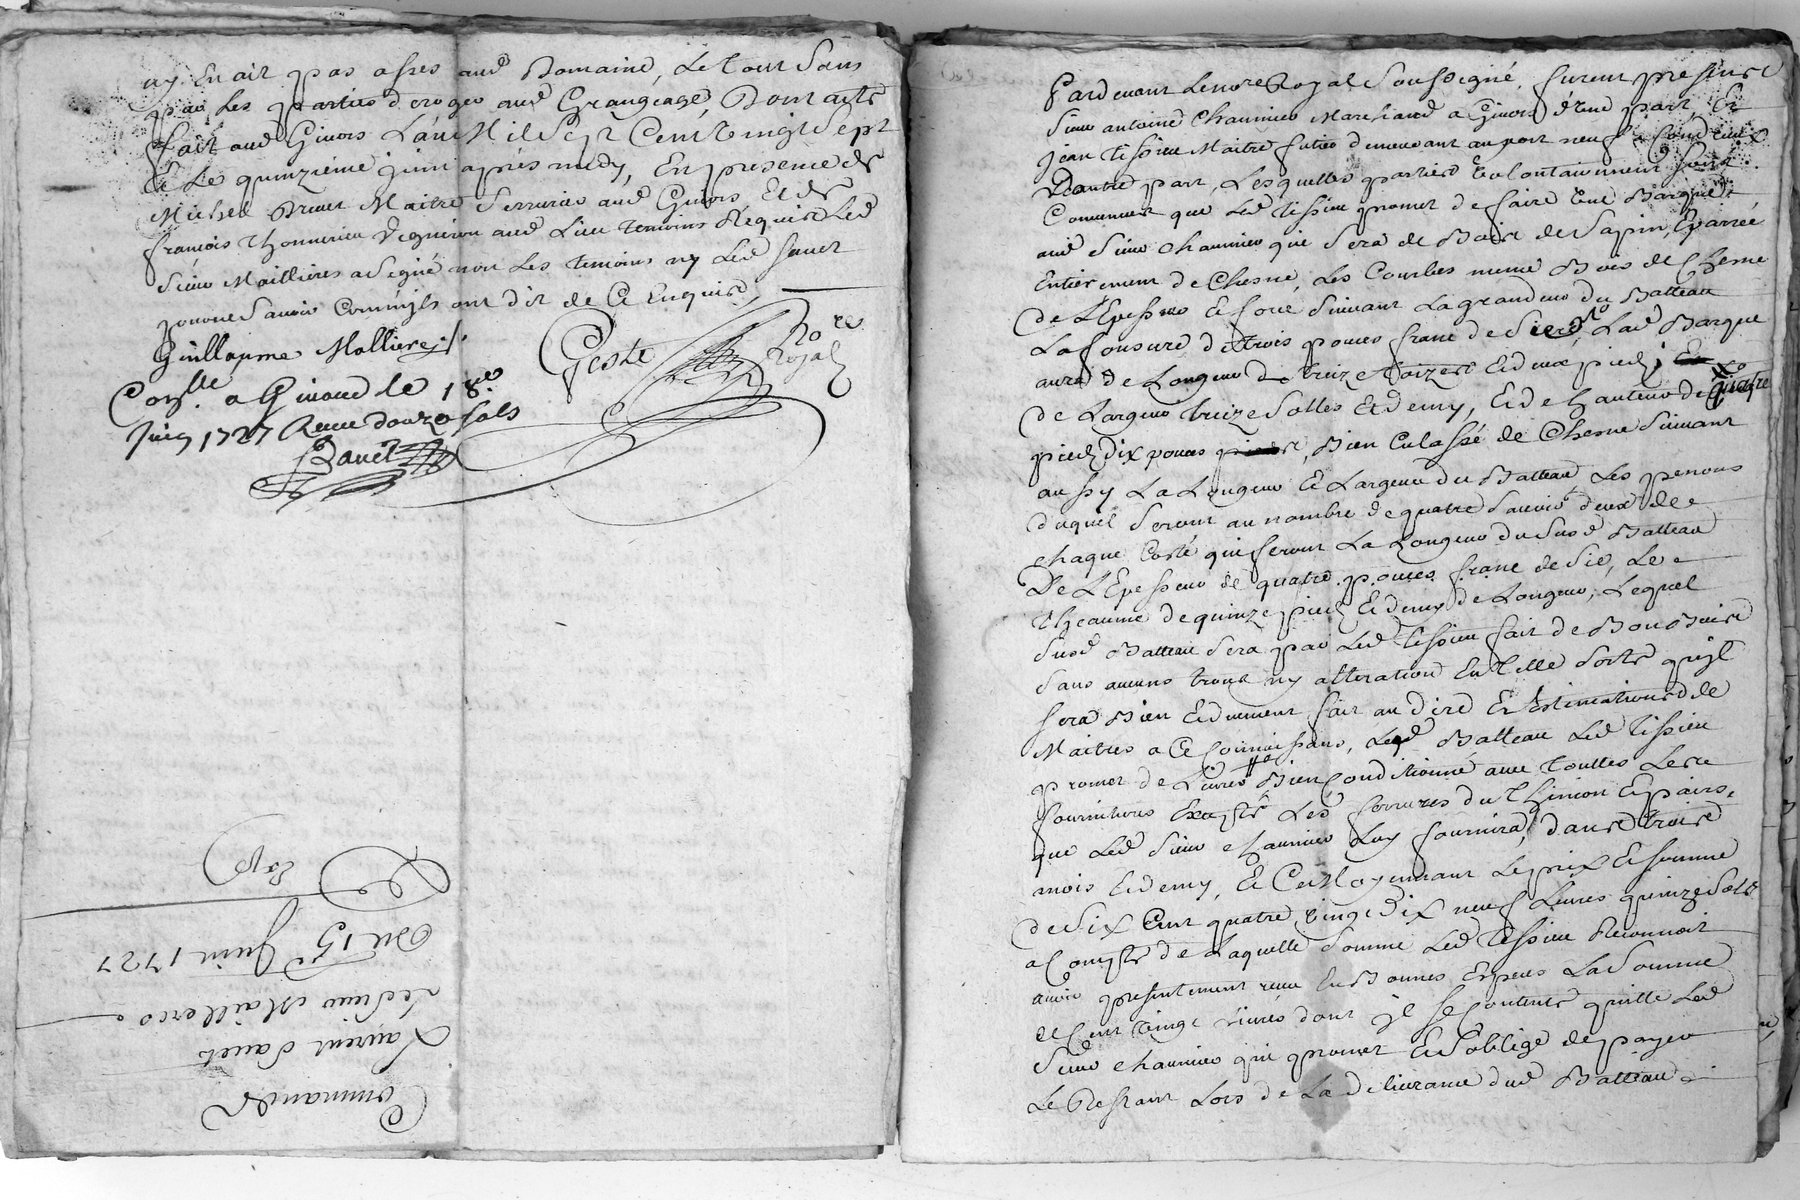 ny En ait pas asses aud Domaine, Le tout Sans
par Les parties deroger aud Grangeage, Dont acte
fait aud Givors L'an Mil Sept Cent vingt Sept
Et Le quinzieme juin apres midy, En presence de
Michel Maitre Serrurier aud Givors Et de
françois Thonnerieu Vigneron aud Lieu temoins Requis Led
Sieur Maillieres a Signé non Les temoins ny Led
pour ne Savoir Comm'ils ont dit de Ce Enquis
Guillaume Mallieres
Geste No.re Royal
Con.lle a Givord le 18.e
Juin 1727 Receu douze sols
Commande
Laurent
Le Sieur Mailleres
Du 15e Juin 1727
Exp
Pardevant Le no.re Royal Soussigné, furent presents
Sieur antoine Chaumier Marchand a Givors d'une part Et
Jean tissieu Maitre demeurant au port neuf a Condrieu
D'autre part, Lesquelles parties volontairement Sont
Convenues que Led tissieu promet de faire une Barque
aud Sieur Chaumier qui Sera de Bois de Sapin,
Entierement de Chesne, Les Courbes meme Bois de Chesne
de L'Epesseur Et force Suivant La grandeur du Batteau
La fonsure de trois pouces franc de Lad Barque
aura de Longeur treize toizes Et deux pieds
de Largeur treize Solles Et demy, Et de hauteur de quatre
pieds dix pouces, Bien Culassé de Chesne Suivant
aussy La Longeur Et Largeur du Batteau Les penons
duquel Seront au nombre de quatre Savoir deux de
chaque Costé qui feront La Longeur du Susd Batteau
De L'Epesseur de quatre pouces franc de Sie, Le
Theaume de quinze pieds Et demy de Longeur, Lequel
Susd Batteau Sera par Led tissieu fait de Bon Bois
Sans aucuns trous ny alteration En Telle Sorte qu'il
Sera Bien Et duement fait au dire Et Estimation de
Maitres a Ce Connoissans, Batteau Led Tissieu
promet de Livrer Bien Conditionné avec Touttes Les
fournitures Excepté Les ferrures du Thimon Et
que Led Sieur Chaumier Luy fournira, dans trois
mois Et demy, Et Ce Moyennant Le prix Et Somme
De Six Cent quatre vingt dix neuf Livres quinze Sols
a Compte de Laquelle Somme Led tissieu Reconnoit
avoir presentement receu En Bonnes Especes La Somme
de Cent vingt Livres dont il Se Contente quitte Led
Sieur Chaumier qui promet Et S'oblige de payer
Le Restant Lors de La delivrance dud Batteau